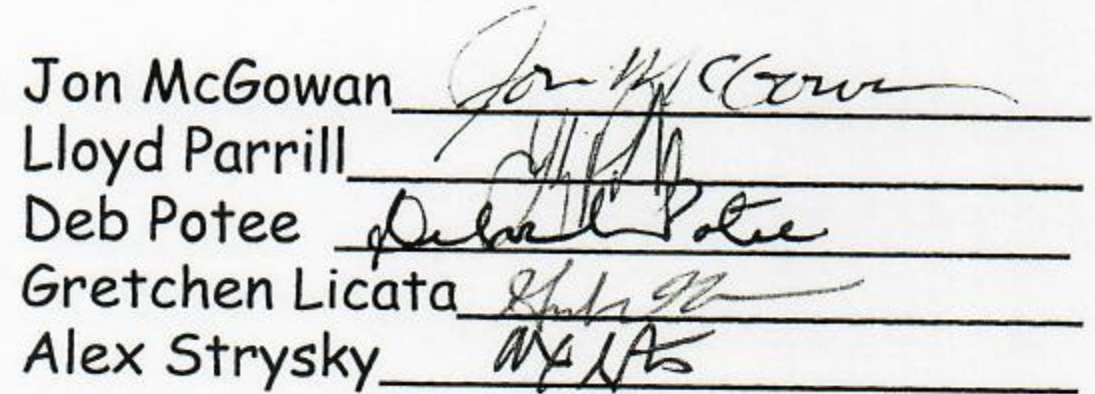 Jon McGowan Jon McGowan
Lloyd Parrill
Deb Potee Deborah Potee
Gretchen Licata
Alex Strysky